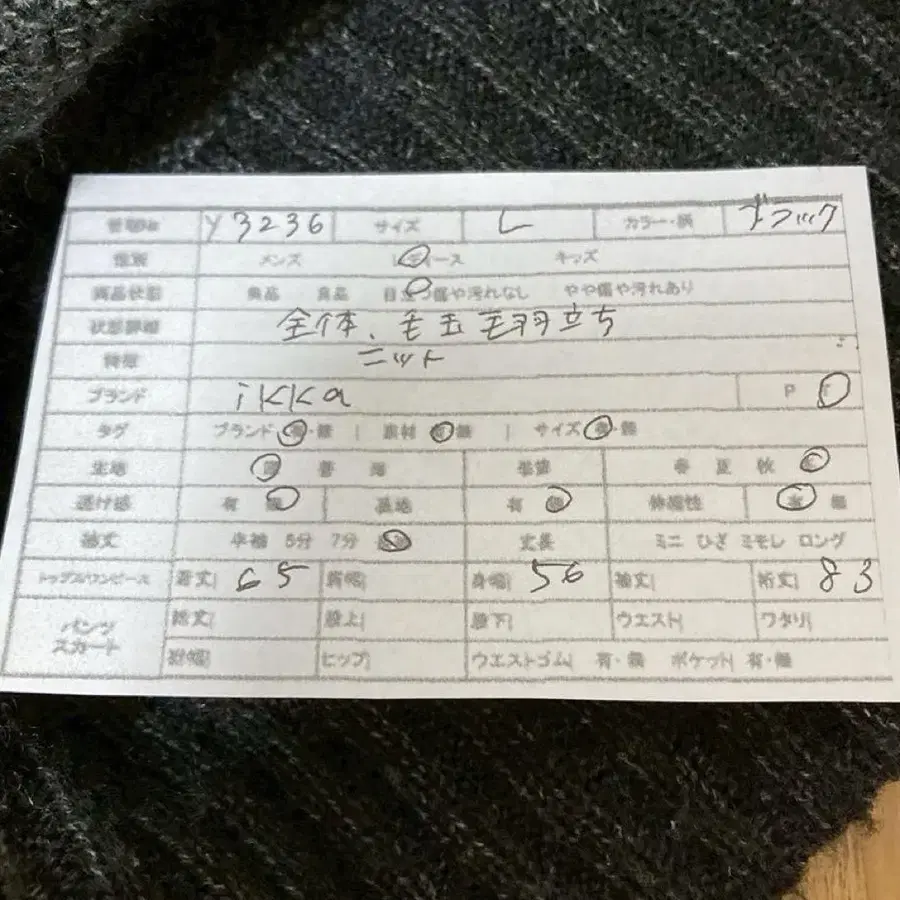 管理No Y3236 サイズ L カラー・柄 ブラック
性別 メンズ レディース キッズ
商品状態 美品 良品 目立つ傷や汚れなし やや傷や汚れあり
状態詳細 全体、毛玉毛羽立ち
特徴 ニット
ブランド ikka P
タグ ブランド 有・無 | 素材 有・無 | サイズ 有・無
生地 厚 普 薄 季節 春 夏 秋 冬
透け感 有 無 裏地 有 無 伸縮性 有 無
袖丈 半袖 5分 7分 丈長 ミニ ひざ ミモレ ロング
トップス/ワンピース 着丈| 65 肩幅| 身幅| 56 袖丈| 裄丈| 83
パンツ スカート 総丈| 股上| 股下| ウエスト| ワタリ|
裾幅| ヒップ| ウエストゴム| 有・無 ポケット| 有・無